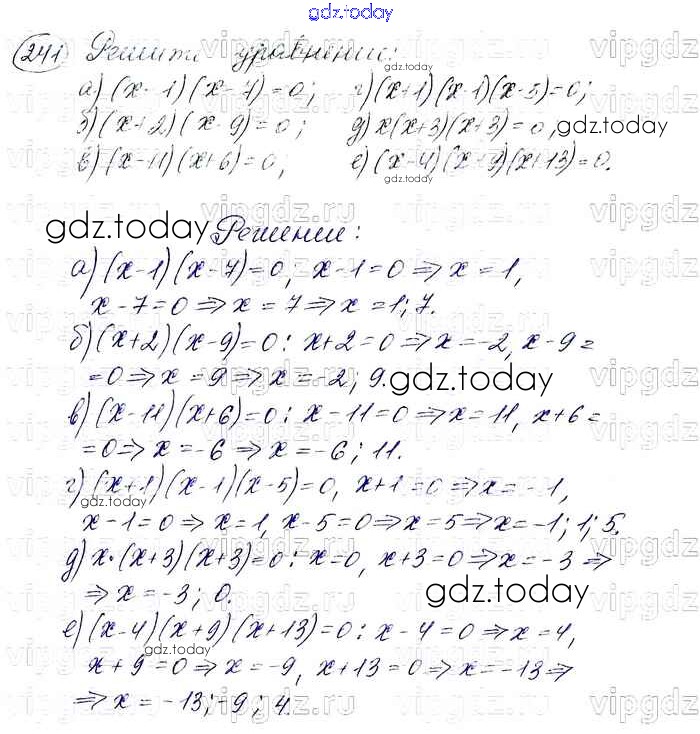 gdz.today
241 Решите уравнение:
а) (x-1)(x-7)=0; г) (x+1)(x-1)(x-5)=0;
б) (x+2)(x-9)=0; д) x(x+3)(x+3)=0,
gdz.today
в) (x-11)(x+6)=0; е) (x-4)(x+9)(x+13)=0.
gdz.today
Решение:
а) (x-1)(x-7)=0; x-1=0⇒x=1,
x-7=0⇒x=7⇒x=1; 7.
б) (x+2)(x-9)=0: x+2=0⇒x=-2, x-9=
=0⇒x=9⇒x=-2; 9.
gdz.today
в) (x-11)(x+6)=0: x-11=0⇒x=11, x+6=
=0⇒x=-6⇒x=-6; 11.
г) (x+1)(x-1)(x-5)=0, x+1=0⇒x=-1,
gdz.today
x-1=0⇒x=1, x-5=0⇒x=5⇒x=-1; 1; 5.
д) x·(x+3)(x+3)=0: x=0, x+3=0⇒x=-3⇒
⇒x=-3; 0.
gdz.today
е) (x-4)(x+9)(x+13)=0: x-4=0⇒x=4,
x+9=0⇒x=-9, x+13=0⇒x=-13⇒
⇒x=-13; -9; 4.
vipgdz.ru